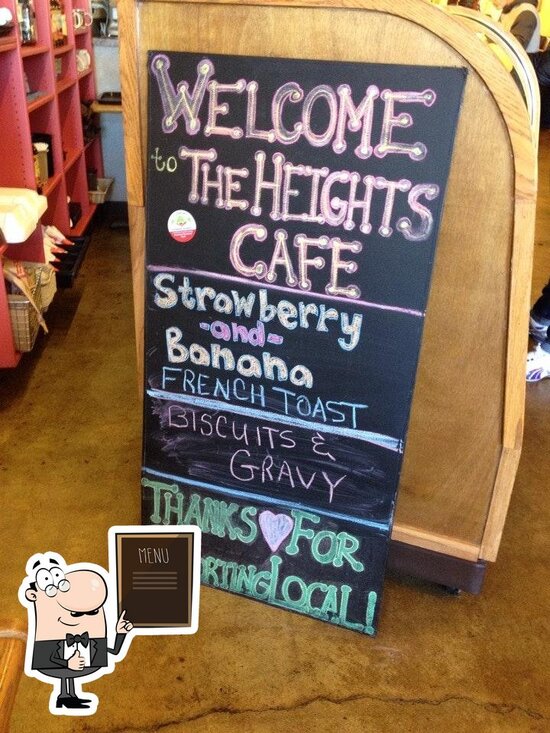 WELCOME
to THE HEIGHTS
CAFE
Strawberry
-and-
Banana
FRENCH TOAST
BISCUITS &
GRAVY
THANKS FOR
ORTING LOCAL!
MENU